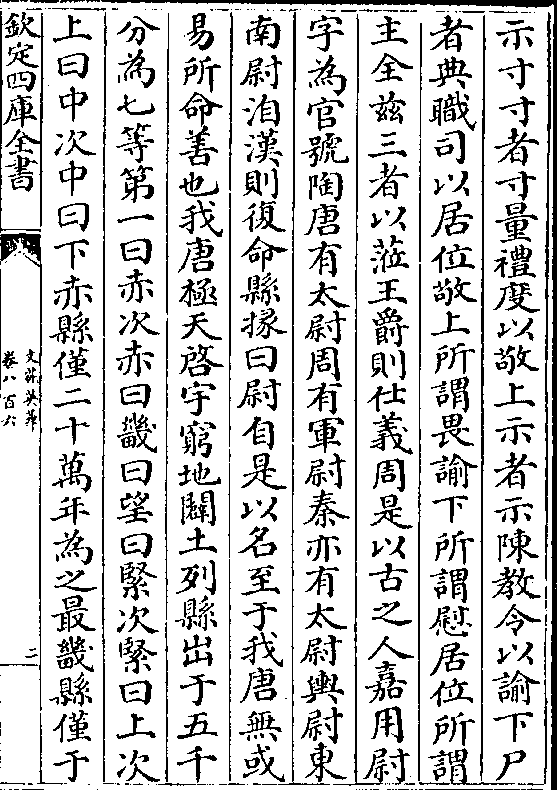 示寸寸者寸量禮度以敬上示者示陳教令以諭下尸
者典職司以居位敬上所謂畏諭下所謂慰居位所謂
主全兹三者以蒞王爵則仕義周是以古之人嘉用尉
字為官號陶唐有太尉周有軍尉秦亦有太尉輿尉東
南尉洎漢則復命縣掾曰尉自是以名至于我唐無或
易所命善也我唐極天啓宇窮地闢土列縣出于五千
分為七等第一曰赤次赤曰畿曰望曰緊次緊曰上次
上曰中次中曰下赤縣僅二十萬年為之最畿縣僅于
欽定四庫全書
文苑英華
卷八百六
二